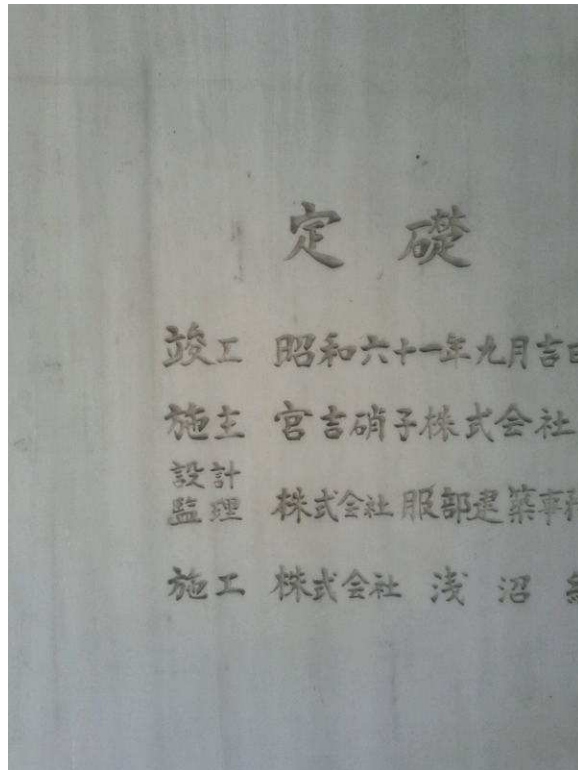 定礎
竣工 昭和六十一年九月吉日
施主 宮吉硝子株式会社
設計
監理 株式会社服部建築事務
施工 株式会社 浅沼